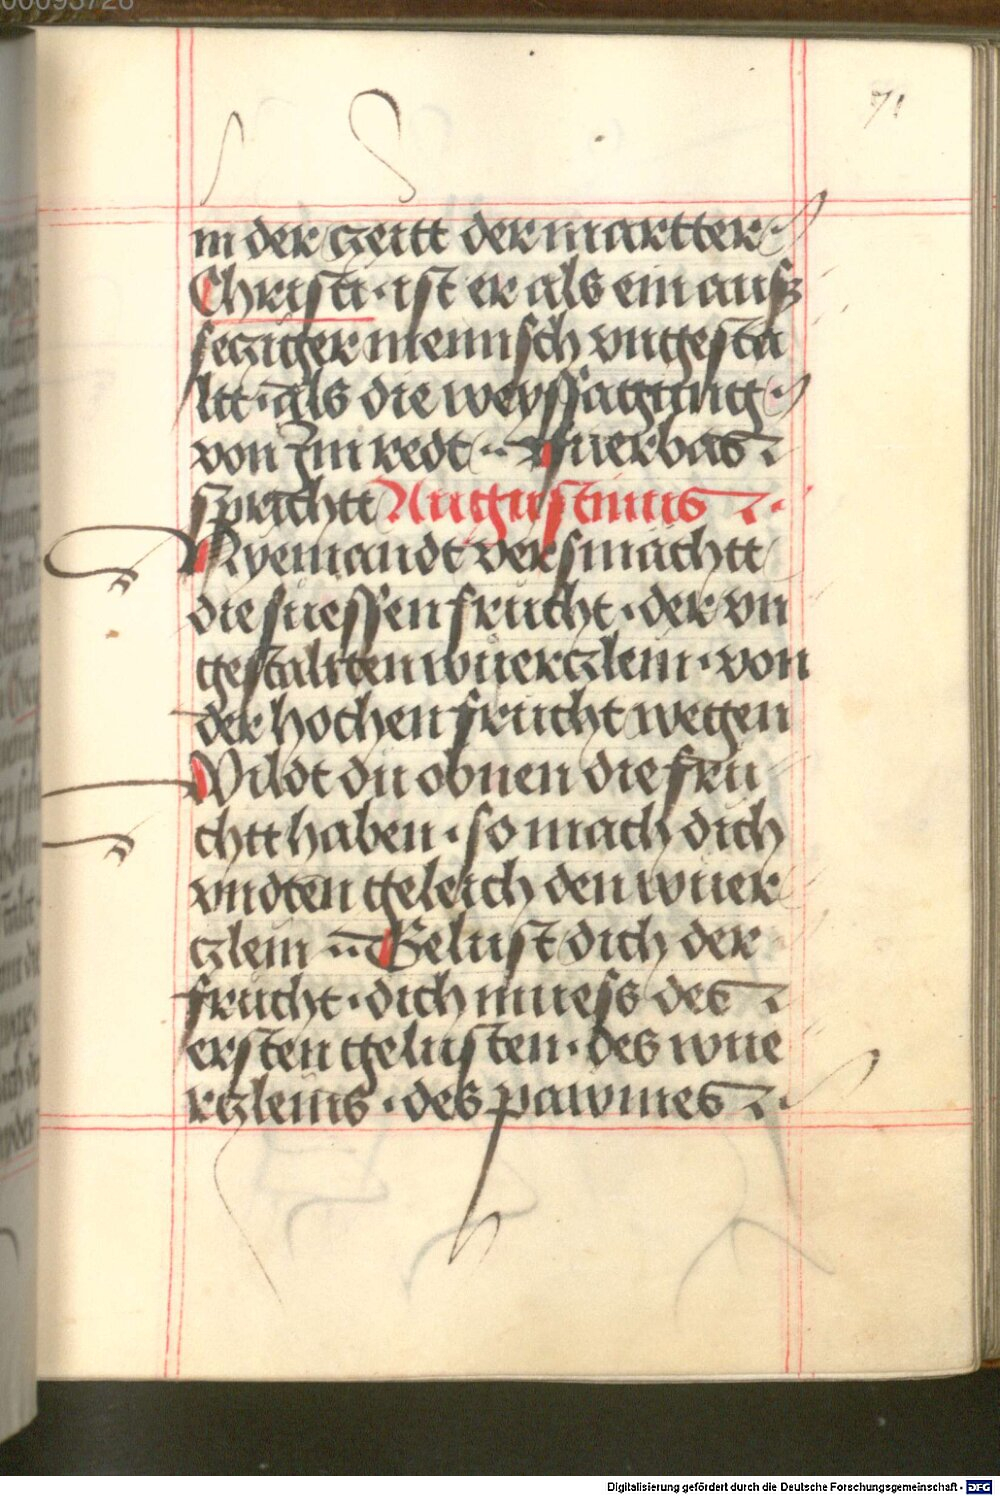 00095726
71
in der zeitt der martter
Christi · ist er als ein aufz
seziger mennsch vngesta
ltt · als die weyssagung
von Im redt ·· Fuerbas
sprichtt Augustinus
Nyemandt versmächtt
die suessen frücht · der vn
gestaltten würczlein · von
der hochen frücht wegen
Wildt du obnen die frü
chtt haben · so mach dich
vndten geleich den wuer
czlein ·· Gelust dich der
frücht · dich muess des
ersten gelusten · des wue
rczleins · des pawmes
Digitalisierung gefördert durch die Deutsche Forschungsgemeinschaft - DFG